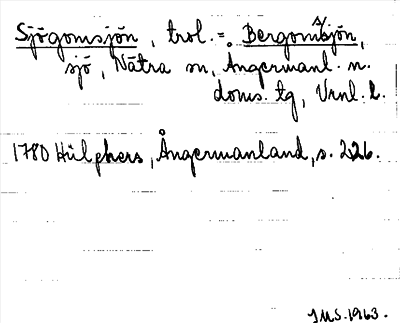 Sjögomsjön, trol. = Bergomsjön,
sjö, Nätra sn, Ångermanl. n.
doms. tg, Vrnl. l.
1780 Hülphers, Ångermanland, s. 226.
JMS. 1963.